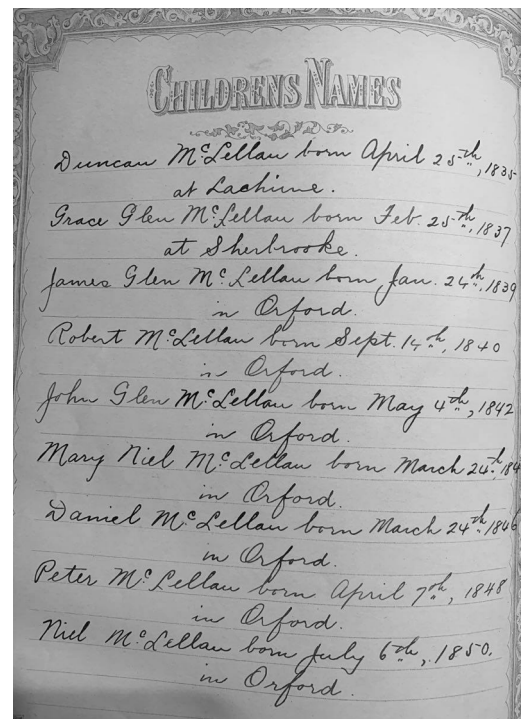 CHILDRENS NAMES
Duncan McLellan born April 25th, 1835
at Lachine.
Grace Glen McLellan born Feb. 25th, 1837
at Sherbrooke.
James Glen McLellan born Jan. 24th, 1839
in Orford.
Robert McLellan born Sept. 14th, 1840
in Orford.
John Glen McLellan born May 4th, 1842
in Orford.
Mary Niel McLellan born March 24th
in Orford.
Daniel McLellan born March 24th 1846
in Orford.
Peter McLellan born April 7th, 1848
in Orford.
Niel McLellan born July 6th, 1850.
in Orford.